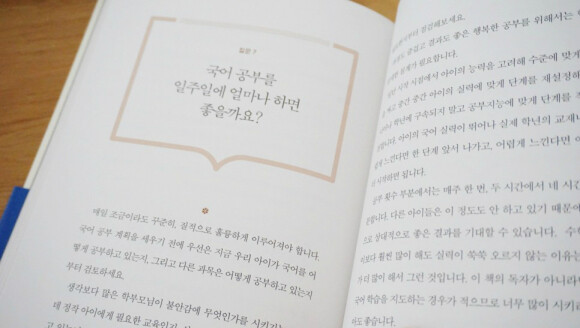 질문 7
국어 공부를
일주일에 얼마나 하면
좋을까요?
매일 조금이라도 꾸준히, 질적으로 훌륭하게 이루어져야 합니다.
국어 공부 계획을 세우기 전에 우선은 지금 우리 아이가 국어를 어
떻게 공부하고 있는지, 그리고 다른 과목은 어떻게 공부하고 있는지
부터 검토하세요.
생각보다 많은 학부모님이 불안감에 무엇인가를 시키기는
데 정작 아이에게 필요한 교육인지
점검해보세요.
즐겁고 결과도 좋은 행복한 공부를 위해서는
필요합니다.
시작 시점에서 아이의 능력을 고려해 수준에 맞게
하고 중간 중간 아이의 실력에 맞게 단계를 재설정하
학년에 구속되지 말고 공부지능에 맞게 단계를
합니다. 아이의 국어 실력이 뛰어나 실제 학년의 교재나
느낀다면 한 단계 앞서 나가고, 어렵게 느낀다면 아
시작하면 됩니다.
공부 횟수 부분에서는 매주 한 번, 두 시간에서 네 시간
합니다. 다른 아이들은 이 정도도 안 하고 있기 때문에
으로 상대적으로 좋은 결과를 기대할 수 있습니다. 수학
보다 훨씬 많이 해도 실력이 쑥쑥 오르지 않는 이유는
더 많이 해서 그런 것입니다. 이 책의 독자가 아니라
국어 학습을 지도하는 경우가 적으므로 너무 많이 시키
도 좋습니다.